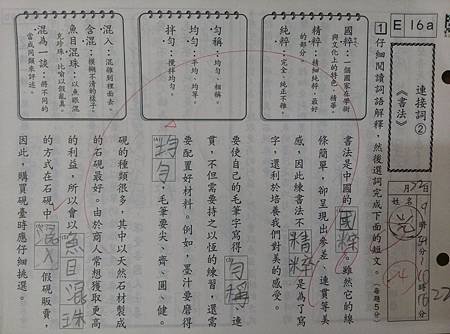 E 16a
連接詞②
《書法》
1 仔細閱讀詞語解釋，然後選詞完成下面的短文。（每題5分）
國粹：一個國家在學術
與文化上的特色、精華
精粹：精細純粹，最好
的部分。
純粹：完全、純正不雜。
勻稱：均勻、相稱。
均勻：平均、均等。
拌勻：攪拌均勻。
混入：混雜到裡面去。
含混：模糊不清的樣子。
魚目混珠：以魚眼混
充珍珠，比喻以假亂真。
混為一談：將不同的
當成同類來評述。
書法是中國的國粹。雖然它的線
條簡單，卻呈現出參差、連貫等美
感，因此練書法不精粹是為了寫
字，還利於培養我們對美的感受。
要使自己的毛筆字寫得勻稱、連
貫，不但需要持之以恆的練習，還需
要配置好材料。例如，墨汁要磨得
均勻，毛筆要尖、齊、圓、健。
硯的種類很多，其中以天然石材製成
的石硯最好。由於商人常想獲取更高
的利益，所以會以魚目混珠
的方式在石硯中混入假硯販賣，
因此，購買硯臺時應仔細挑選。
姓名
月